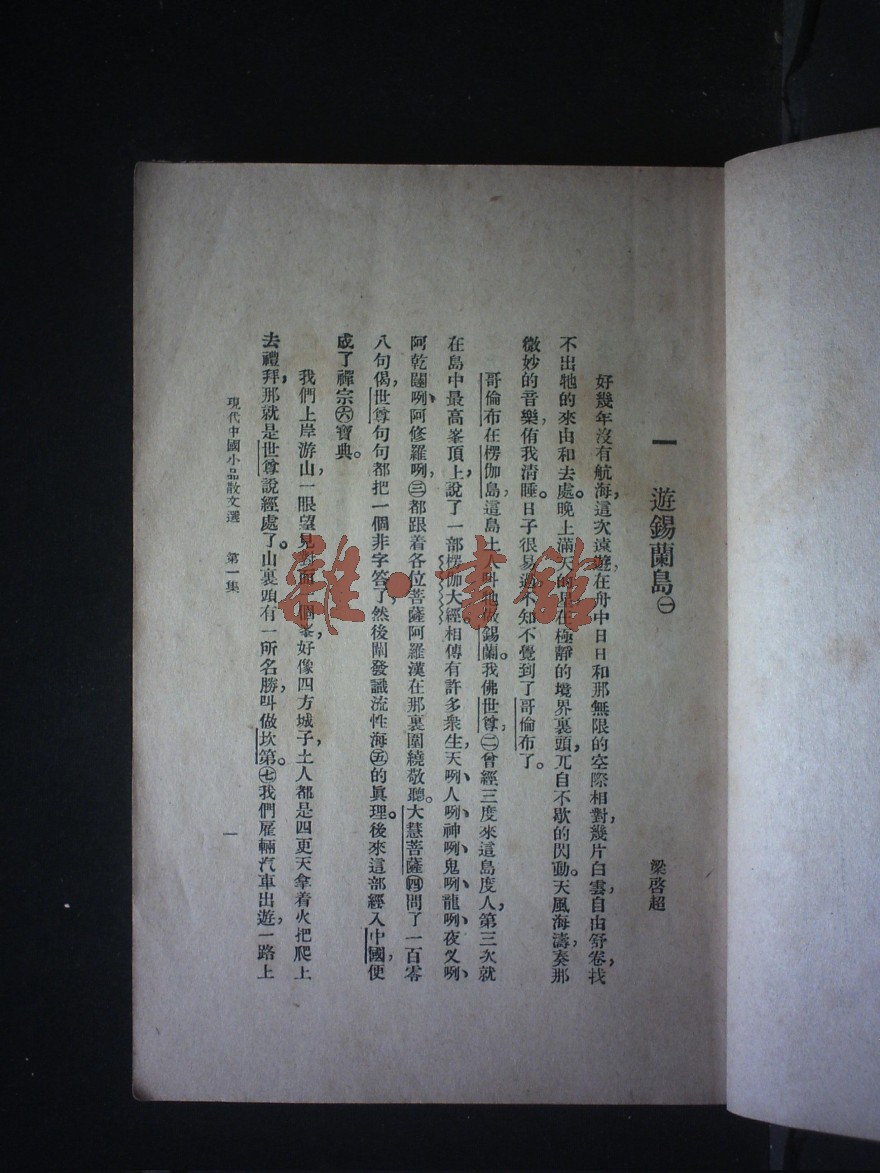 一　遊錫蘭島㊀
梁啓超
好幾年沒有航海，這次遠遊，在舟中日日和那無限的空際相對，幾片白雲，自由舒卷，找
不出牠的來由和去處。晚上滿天的星，在極靜的境界裏頭，兀自不歇的閃動。天風海濤，奏那
微妙的音樂，侑我清睡。日子很易過，不知不覺到了哥倫布了。
哥倫布在楞伽島，這島土人叫牠做錫蘭。我佛世尊㊁曾經三度來這島度人，第三次就
在島中最高峯頂上，說了一部楞伽大經。相傳有許多衆生，天咧、人咧、神咧、鬼咧、龍咧、夜叉咧、
阿乾闥咧、阿修羅咧，㊂都跟着各位菩薩阿羅漢在那裏圍繞敬聽。大慧菩薩㊃問了一百零
八句偈，世尊句句都把一個非字答了，然後闡發識流性海㊄的眞理。後來這部經入中國，便
成了禪宗㊅寶典。
我們上岸游山，一眼望見對面一個峯，好像四方城子，土人都是四更天拿着火把爬上
去禮拜，那就是世尊說經處了。山裏頭有一所名勝，叫做坎第。㊆我們雇輛汽車出遊，一路上
現代中國小品散文選　第一集
一
雜·書館